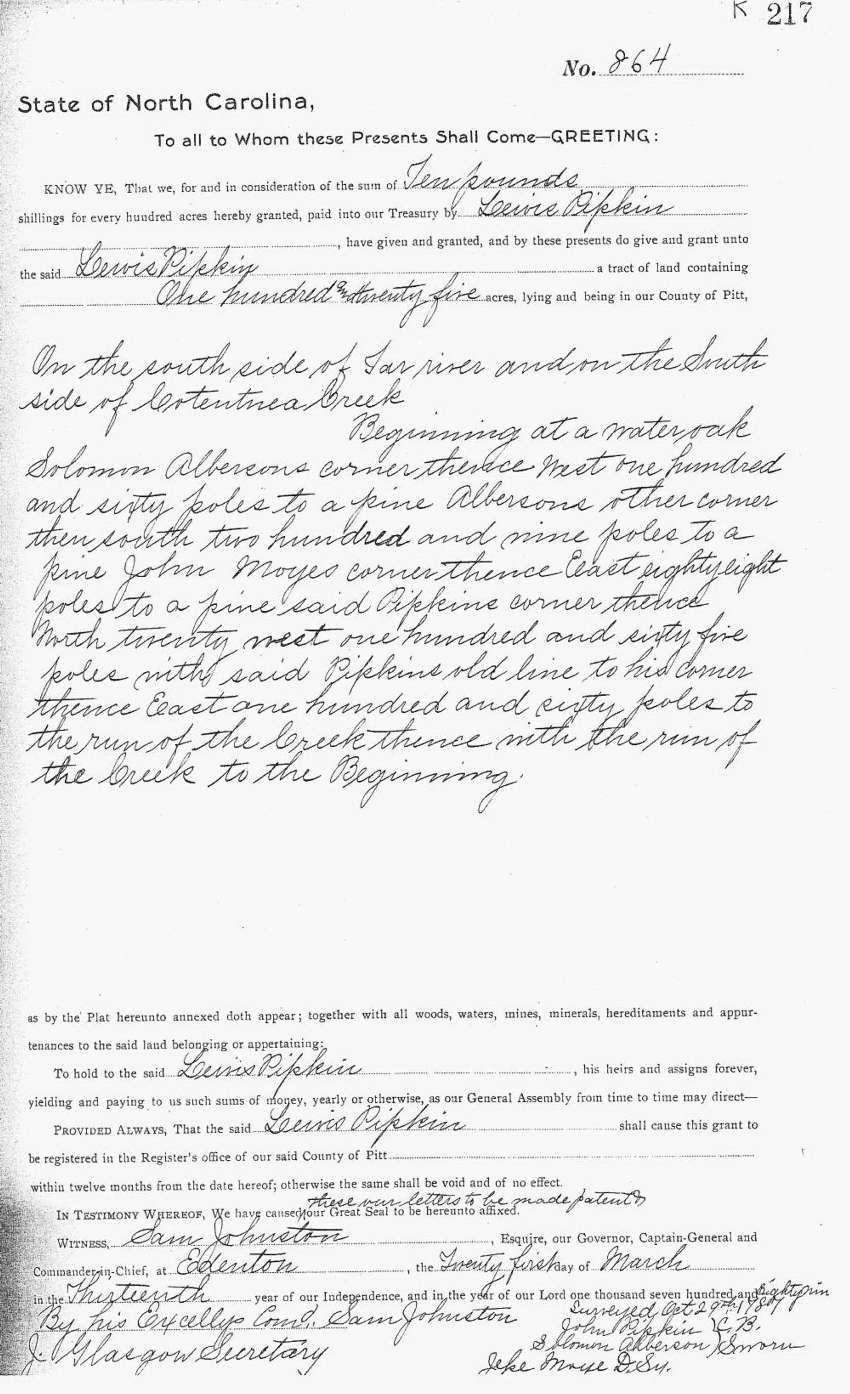 K 217
No. 864
State of North Carolina,
To all to Whom these Presents Shall Come—GREETING:
KNOW YE, That we, for and in consideration of the sum of Ten pounds
shillings for every hundred acres hereby granted, paid into our Treasury by Lewis Pipkin
, have given and granted, and by these presents do give and grant unto
the said Lewis Pipkin a tract of land containing
One hundred and twenty five acres, lying and being in our County of Pitt,
On the south side of Tar river and on the South
side of Cotentnea Creek
Beginning at a water oak
Solomon Albersons corner thence West one hundred
and sixty poles to a pine Albersons other corner
then south two hundred and nine poles to a
pine John Moyes corner thence East eighty eight
poles to a pine said Pipkins corner thence
North twenty west one hundred and sixty five
poles with said Pipkins old line to his corner
thence East one hundred and sixty poles to
the run of the Creek thence with the run of
the Creek to the Beginning.
as by the Plat hereunto annexed doth appear; together with all woods, waters, mines, minerals, hereditaments and appur-
tenances to the said land belonging or appertaining:
To hold to the said Lewis Pipkin , his heirs and assigns forever,
yielding and paying to us such sums of money, yearly or otherwise, as our General Assembly from time to time may direct—
PROVIDED ALWAYS, That the said Lewis Pipkin shall cause this grant to
be registered in the Register's office of our said County of Pitt
within twelve months from the date hereof; otherwise the same shall be void and of no effect.
these our letters to be made patent &
IN TESTIMONY WHEREOF, We have caused our Great Seal to be hereunto affixed.
WITNESS, Sam Johnston , Esquire, our Governor, Captain-General and
Commander-in-Chief, at Edenton , the Twenty first day of March
in the Thirteenth year of our Independence, and in the year of our Lord one thousand seven hundred and Eighty nin
By his Excellys Comd. Sam Johnston
Surveyed Oct 29th 1787
John Pipkin C.B.
Solomon Alberson Sworn
J. Glasgow Secretary
Jeke Moye D. Su.